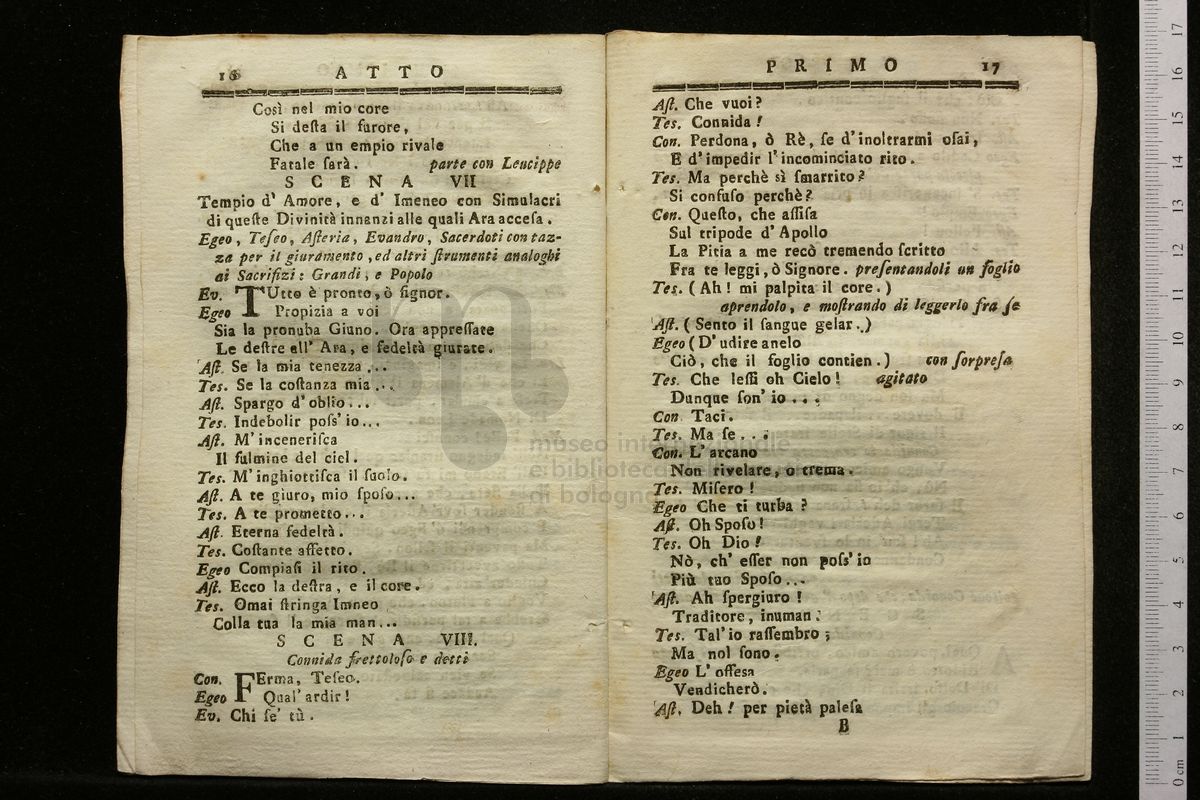 16 ATTO
Così nel mio core
Si deſta il furore,
Che a un empio rivale
Fatale ſarà. parte con Leucippe
SCENA VII
Tempio d' Amore, e d' Imeneo con Simulacri
di queſte Divinità innanzi alle quali Ara acceſa.
Egeo, Teſeo, Aſteria, Evandro, Sacerdoti con taz-
za per il giuramento, ed altri ſtrumenti analoghi
ai Sacrifizi: Grandi, e Popolo
Ev. TUtto è pronto, ò ſignor.
Egeo Propizia a voi
Sia la pronuba Giuno. Ora appreſſate
Le deſtre all' Ara, e fedeltà giurate.
Aſt. Se la mia tenezza...
Tes. Se la coſtanza mia...
Aſt. Spargo d'oblio...
Tes. Indebolir poſs' io...
Aſt. M' inceneriſca
Il fulmine del ciel.
Tes. M' inghiottiſca il ſuolo.
Aſt. A te giuro, mio ſpoſo...
Tes. A te prometto...
Aſt. Eterna fedeltà.
Tes. Coſtante affetto.
Egeo Compiaſi il rito.
Aſt. Ecco la deſtra, e il core.
Tes. Omai ſtringa Imneo
Colla tua la mia man...
SCENA VIII.
Connida frettoloſo e detti
Con. FErma, Teſeo.
Egeo Qual' ardir!
Ev. Chi ſe' tù.
PRIMO 17
Aſt. Che vuoi?
Tes. Connida!
Con. Perdona, ò Rè, ſe d'inoltrarmi oſai,
E d'impedir l'incominciato rito.
Tes. Ma perchè sì ſmarrito?
Si confuſo perchè?
Con. Queſto, che aſſiſa
Sul tripode d' Apollo
La Pitia a me recò tremendo ſcritto
Fra te leggi, ò Signore. preſentandoli un foglio
Tes. (Ah! mi palpita il core.)
aprendolo, e moſtrando di leggerlo fra ſe
Aſt. (Sento il ſangue gelar.)
Egeo (D' udire anelo
Ciò, che il foglio contien.) con ſorpreſa
Tes. Che leſſi oh Cielo! agitato
Dunque ſon' io...
Con Taci.
Tes. Ma ſe...
Con. L' arcano
Non rivelare, o trema.
Tes. Miſero!
Egeo Che ti turba?
Aſt. Oh Spoſo!
Tes. Oh Dio!
Nò, ch' eſſer non poſs' io
Più tuo Spoſo...
Aſt. Ah ſpergiuro!
Traditore, inuman!
Tes. Tal' io raſſembro;
Ma nol ſono.
Egeo L' offeſa
Vendicherò.
Aſt. Deh! per pietà paleſa
B
museo internazionale
e biblioteca
di bologna
0 cm 1 2 3 4 5 6 7 8 9 10 11 12 13 14 15 16 17